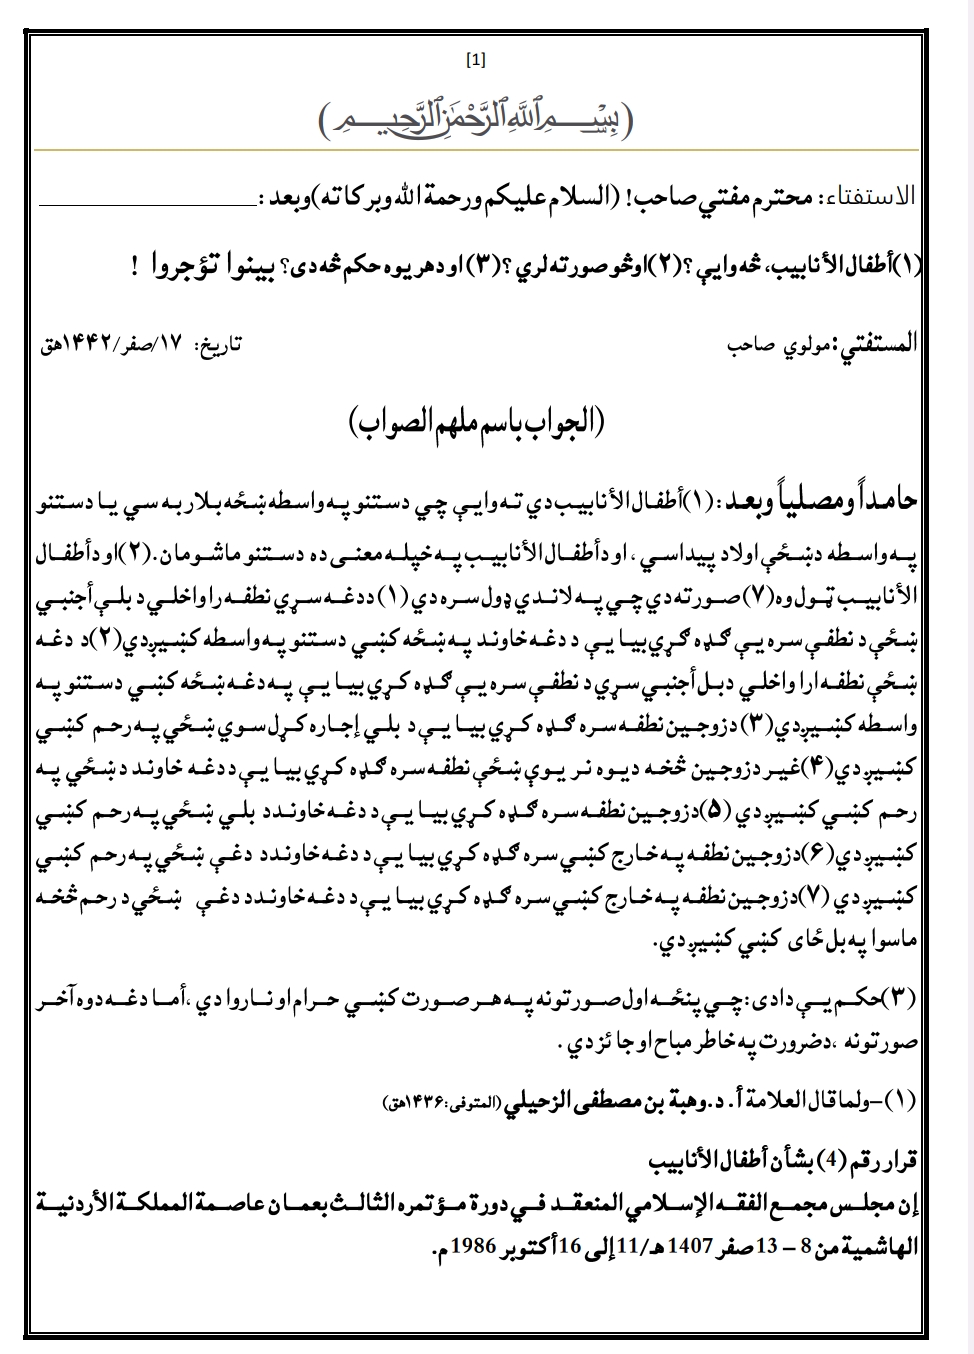 [1]
(بِسْمِ ٱللَّهِ ٱلرَّحْمَٰنِ ٱلرَّحِيمِ)
الاستفتاء: محترم مفتي صاحب! (السلام علیکم ورحمة الله وبرکاته)وبعد :
(۱)أطفال الأنابیب، څه وایي ؟(۲)اوڅو صورته لري ؟(۳) او دهر یوه حکم څه دی؟ بینوا تؤجروا !
المستفتي:مولوي صاحب تاریخ: ۱۷/صفر/۱۴۴۲هق
(الجواب باسم ملهم الصواب)
حامداً ومصلیاً وبعد:(۱)أطفال الأنابیب دي ته وایي چي دستنو په واسطه ښځه بلاربه سي یا دستنو
په واسطه دښځي اولاد پیداسي ، او دأطفال الأنابیب په خپله معنی ده دستنو ماشومان.(۲)او دأطفال
الأنابیب ټول وه(۷)صورته دي چي په لاندي ډول سره دي(۱) ددغه سړي نطفه را واخلي د بلي أجنبي
ښځي د نطفې سره یې ګډه ګړي بیا یې د دغه خاوند په ښځه کښي دستنو په واسطه کښیږدي(۲)د دغه
ښځي نطفه ارا واخلي دبل أجنبي سړي د نطفې سره یې ګډه کړي بیا یې په دغه ښځه کښي دستنو په
واسطه کښیږدي(۳)دزوجین نطفه سره ګډه کړي بیا یې د بلي إجاره کړل سوي ښځي په رحم کښي
کښیږدي(۴)غیر دزوجین څخه دیوه نر یوې ښځي نطفه سره ګډه کړي بیا یې ددغه خاوند دښځي په
رحم کښي کښیږدي (۵)دزوجین نطفه سره ګډه کړي بیا یې د دغه خاوند د بلي ښځي په رحم کښي
کښیږدي(۶)دزوجین نطفه په خارج کښي سره ګډه کړي بیا یې د دغه خاوند د دغې ښځي په رحم کښي
کښیږدي (۷)دزوجین نطفه په خارج کښي سره ګډه کړي بیا یې د دغه خاوند د دغې ښځي د رحم څخه
ماسوا په بل ځای کښي کښیږدي.
(۳)حکم یې دادی: چي پنځه اول صورتونه په هر صورت کښي حرام او ناروا دي ،أما دغه دوه آخر
صورتونه ،دضرورت په خاطر مباح او جائز دي .
(۱)-ولما قال العلامة أ. د. وهبة بن مصطفی الزحیلي (المتوفی:۱۴۳۶هق)
قرار رقم (4) بشأن أطفال الأنابیب
إن مجلس مجمع الفقه الإسلامي المنعقد في دورة مؤتمره الثالث بعمان عاصمة المملکة الأردنیة
الهاشمیة من 8 – 13 صفر 1407 هـ/11 إلی 16 أکتوبر 1986 م.